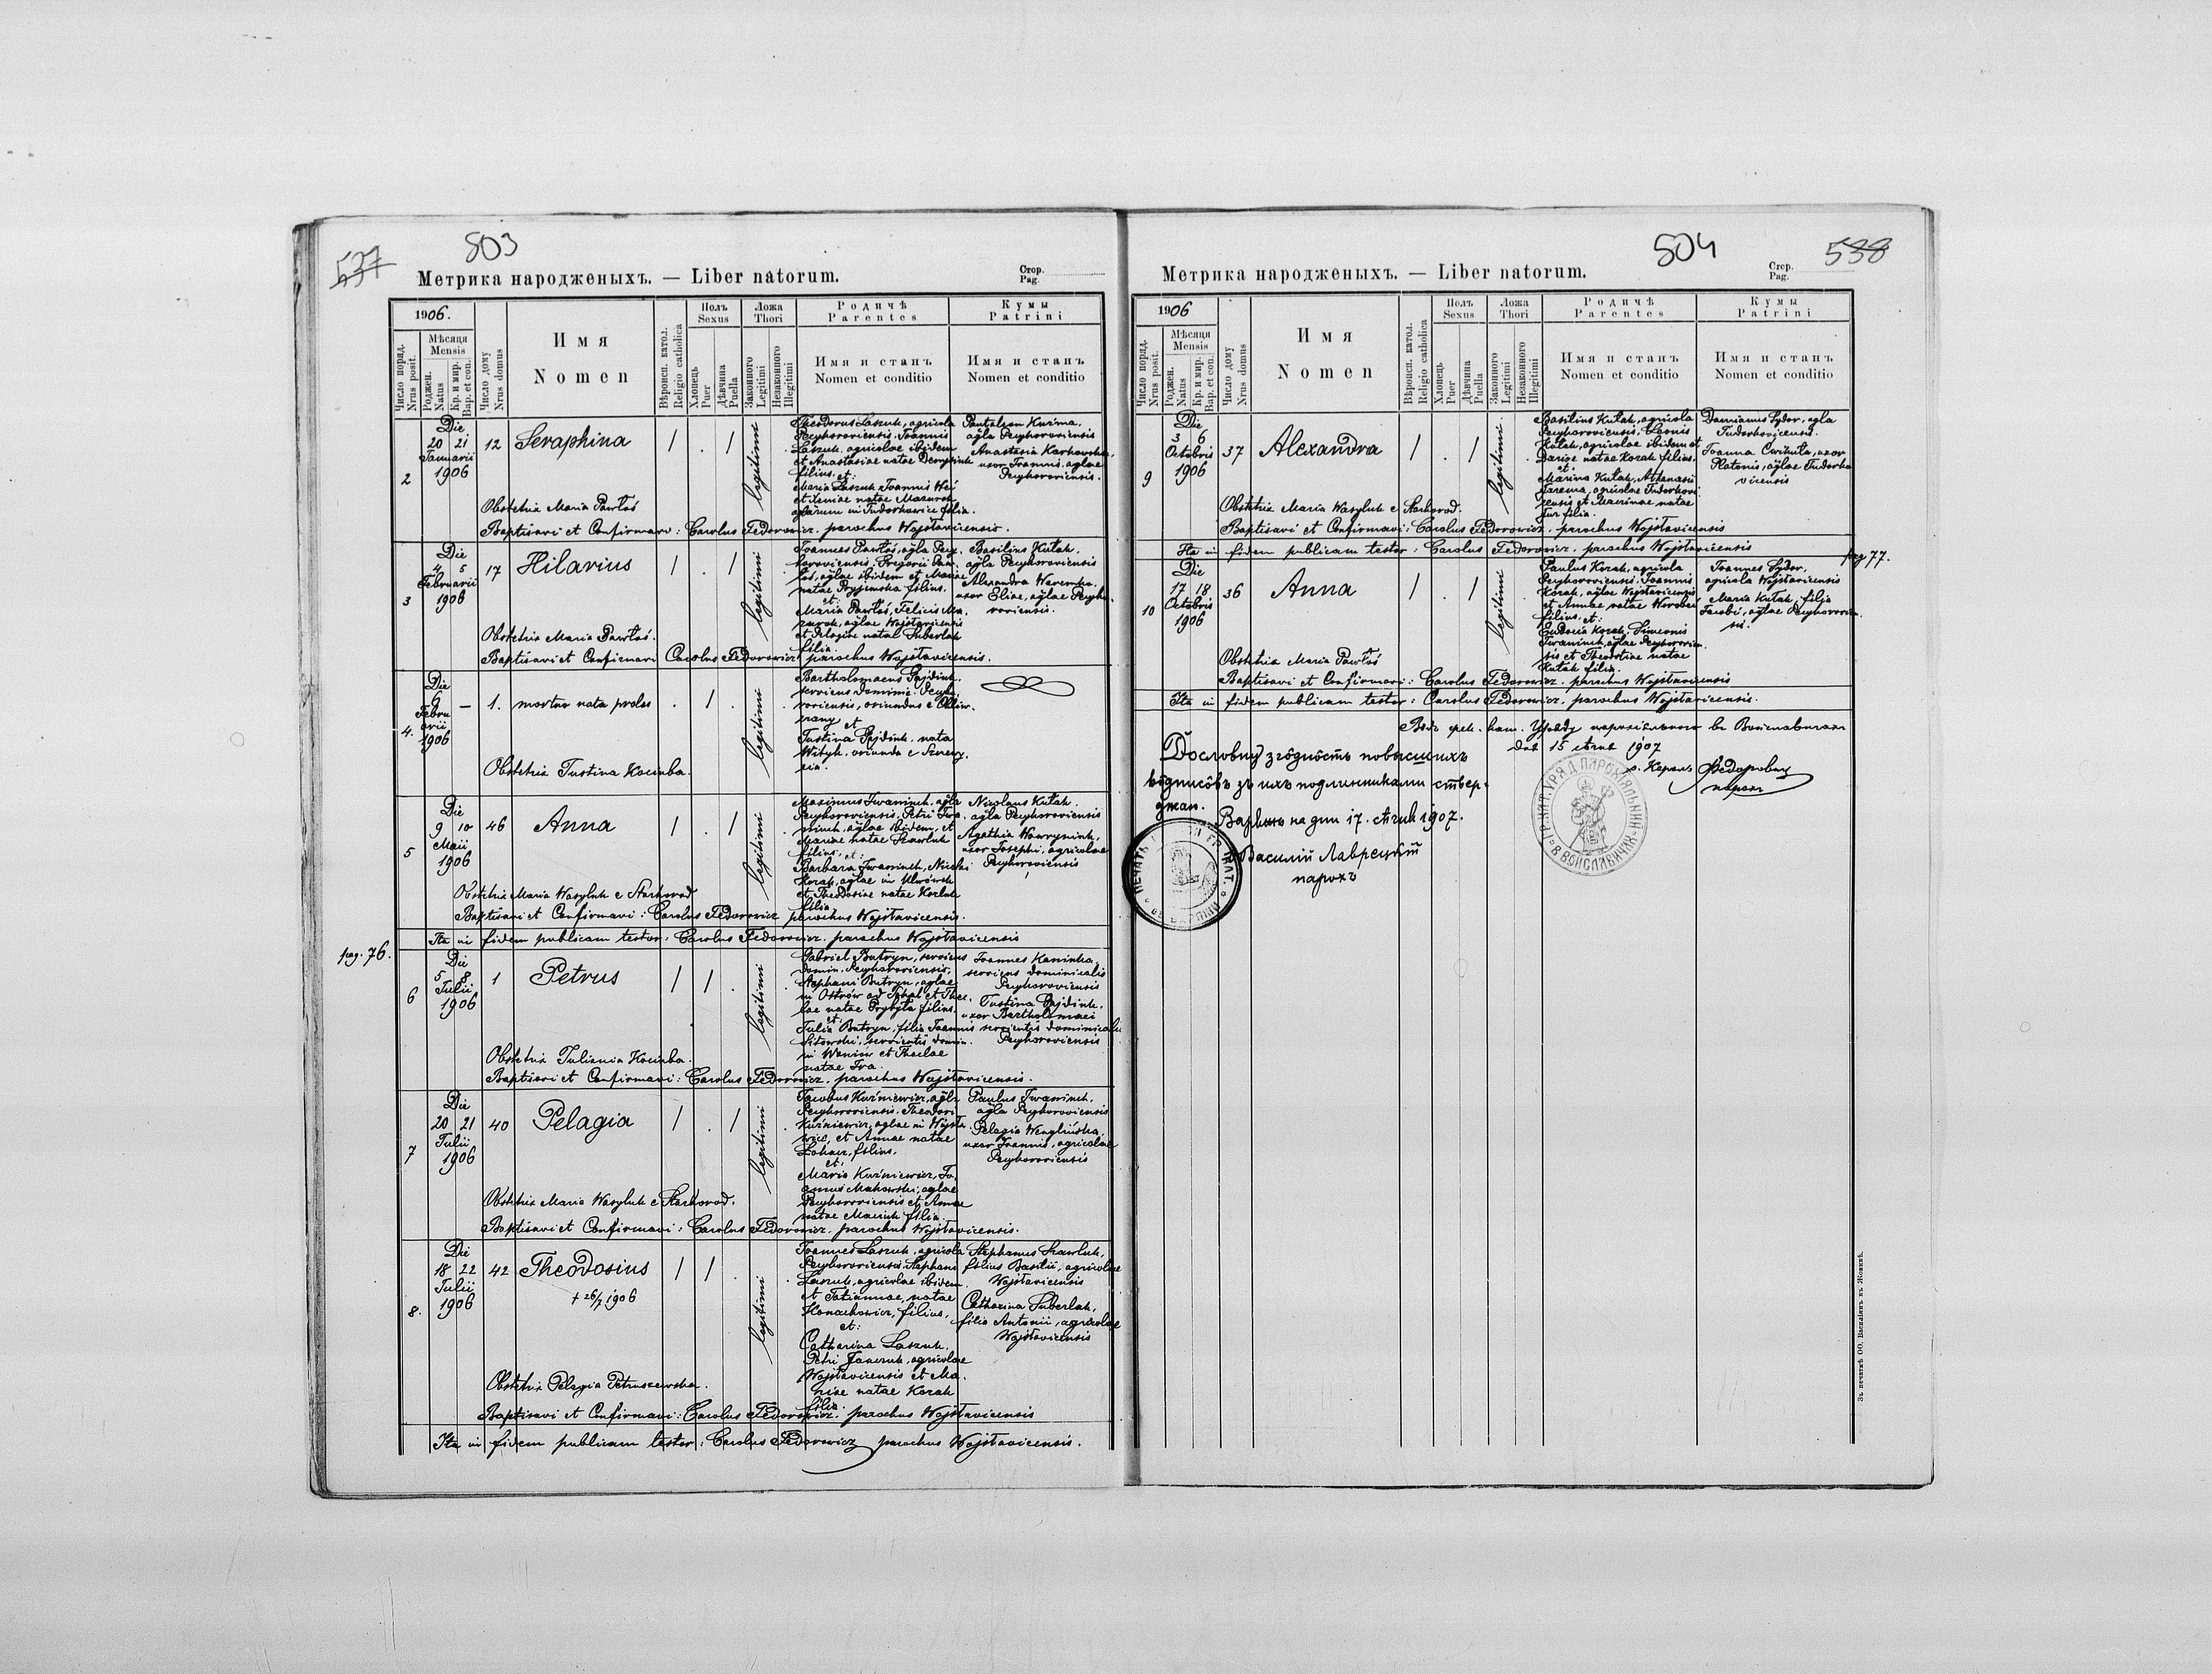 537
503
Метрика народженыхъ. — Liber natorum.
Стор.
Pag.
1906.
Число поряд.
Nrus posit.
Мѣсяця
Mensis
Роджен.
Natus
Кр. и мир.
Bap. et con.
Число дому
Nrus domus
Имя
Nomen
Вѣроисп. катол.
Religio catholica
Полъ
Sexus
Хлопець
Puer
Дѣвчина
Puella
Ложа
Thori
Законного
Legitimi
Незаконного
Illegitimi
Родичѣ
Parentes
Имя и станъ
Nomen et conditio
Кумы
Patrini
Имя и станъ
Nomen et conditio
2
Die
20 21
Januarii
1906
12
Seraphina
1 . 1
legitimi
Theodorus Laszuk, agricola
Peryhoroviensis, Joannis
Laszuk, agricolae ibidem
et Anastasiae natae Demysiuk
filius, et:
Maria Laszuk Joannis Wei
et Xeniae natae Mazurok
aglarum in Tudorkovice filia.
Pantaleon Kuźma,
agla Peryhoroviensis
Anastasia Karkowska,
uxor Joannis, aglae
Peryhoroviensis.
Obstetrix Maria Pawłoś
Baptisavi et Confirmavi: Carolus Fedorowicz, parochus Wojsławicensis.
3
Die
4 5
Februarii
1906
17
Hilarius
1 . 1
legitimi
Joannes Pawłoś, agla Pery-
horoviensis, Gregorii Paw-
łoś, aglae ibidem et Mariae
natae Pryjmska filius.
et
Maria Pawłoś, Felicis Ma-
zurok, aglae Wojsławicensis
et Pelagiae natae Suberlak
filia.
Basilius Kułak,
agla Peryhoroviensis
Alexandra Weremko,
uxor Eliae, aglae Peryho-
roviensis.
Obstetrix Maria Pawłoś.
Baptisavi et Confirmavi Carolus Fedorowicz parochus Wojsławicensis.
4.
Die
6 —
Febru
arii
1906
1.
mortuo nata proles
. 1 .
legitimi
Bartholomaeus Pajdiuk,
serviens dominii Peryho-
roviensis, oriundus e
et
Justina Pajdiuk, nata
Wityk, oriunda e
Obstetrix Justina Kociuba.
5
Die
9 10
Maii
1906
46
Anna
1 . 1
legitimi
Maximus Iwaniuch, agla
Peryhoroviensis, Petri Iwa-
niuch, aglae ibidem, et
Mariae natae Szawluk
filius, et:
Barbara Iwaniuch, Nicolai
Korak, aglae in Uhrinów
et Theodosiae natae Kozluk
filia.
Nicolaus Kułak,
agla Peryhoroviensis
Agathia Wawryniuk,
uxor Josephi, agricolae
Peryhoroviensis
Obstetrix Maria Wasyluk e Starhorod
Baptisavi et Confirmavi: Carolus Fedorowicz parochus Wojsławicensis.
Ita in fidem publicam testor: Carolus Fedorowicz, parochus Wojsławicensis
pag. 76.
6
Die
5 8
Julii
1906
1
Petrus
1 1 .
legitimi
Gabriel Butryn, serviens
domin. Peryhoroviensis,
Stephani Butryn, aglae
in Ostrów ad Sokal et Thec-
lae natae Prybyła filius.
et:
Julia Butryn, filia Joannis
Sitowski, servientis domin.
in Waniów et Theclae
natae Ira.
Joannes Kaminka,
serviens dominicalis
Peryhoroviensis
Justina Pajdiuk,
uxor Bartholomaei
servientis dominicalis
Peryhoroviensis
Obstetrix Juliania Kociuba.
Baptisavi et Confirmavi: Carolus Fedorowicz, parochus Wojsławicensis.
7
Die
20 21
Julii
1906
40
Pelagia
1 . 1
legitimi
Jacobus Kuźniewicz, agla
Peryhoroviensis, Theodori
Kuźniewicz, aglae in Wojsła-
wice, et Annae natae
filius.
et:
Maria Kuźniewicz, Jo-
annis Makowski, aglae
Peryhoroviensis et Annae
natae filia.
Paulus Iwaniuch,
agla Peryhoroviensis
Pelagia Wenglińska,
uxor Joannis, agricolae
Peryhoroviensis
Obstetrix Maria Wasyluk e Starhorod.
Baptisavi et Confirmavi: Carolus Fedorowicz, parochus Wojsławicensis.
8.
Die
18 22
Julii
1906
42
Theodosius
† 26/7 1906
1 1 .
legitimi
Joannes Laszuk, agricola
Peryhoroviensis, Stephani
Laszuk, agricolae ibidem
et Tatiannae, natae
Konachowicz, filius,
et:
Catharina Laszuk,
Petri Janczuk, agricolae
Wojsławicensis et Ma-
riae natae Korak
filia.
Stephanus Szawluk,
filius Basilii, agricolae
Wojsławicensis
Catharina Suberlak,
filia Antonii, agricolae
Wojsławicensis
Obstetrix Pelagia Petruszewska.
Baptisavi et Confirmavi: Carolus Fedorowicz, parochus Wojsławicensis
Ita in fidem publicam testor: Carolus Fedorowicz parochus Wojsławicensis.
504
538
Метрика народженыхъ. — Liber natorum.
Стор.
Pag.
1906
Число поряд.
Nrus posit.
Мѣсяця
Mensis
Роджен.
Natus
Кр. и мир.
Bap. et con.
Число дому
Nrus domus
Имя
Nomen
Вѣроисп. катол.
Religio catholica
Полъ
Sexus
Хлопець
Puer
Дѣвчина
Puella
Ложа
Thori
Законного
Legitimi
Незаконного
Illegitimi
Родичѣ
Parentes
Имя и станъ
Nomen et conditio
Кумы
Patrini
Имя и станъ
Nomen et conditio
9
Die
3 6
Octobris
1906
37
Alexandra
1 . 1
legitimi
Basilius Kułak, agricola
Peryhoroviensis, Leonis
Kułak, agricolae ibidem et
Dariae natae Korak filius.
et
Marina Kułak, Athanasii
Jarema, agricolae Tudorkovi-
censis et Macrinae natae
filia.
Damianus Sydor, agla
Tudorkovicensis.
Joanna Cwikuła, uxor
Platonis, aglae Tudorko-
vicensis
Obstetrix Maria Wasyluk e Starhorod.
Baptisavi et Confirmavi: Carolus Fedorowicz, parochus Wojsławicensis
Ita in fidem publicam testor: Carolus Fedorowicz, parochus Wojsławicensis
pag 77.
10
Die
17 18
Octobris
1906
36
Anna
1 . 1
legitimi
Paulus Korak, agricola
Peryhoroviensis, Joannis
Korak, aglae Wojsławicensis
et Annae natae Worobec
filius, et:
Eudoxia Korak, Simeonis
Iwaniuch, aglae Peryhorovien-
sis et Theodosiae natae
Kułak filia.
Joannes Sydor,
agricola Wojsławicensis
Maria Kułak, filia
Jacobi, aglae Peryhorovien-
sis.
Obstetrix Maria Pawłoś
Baptisavi et Confirmavi: Carolus Fedorowicz, parochus Wojsławicensis
Ita in fidem publicam testor: Carolus Fedorowicz, parochus Wojsławicensis.
Вôдъ грек. кат. Уряду парохіяльного въ Войславичахъ
дня 15 сѣчня 1907
о. Кароль Федоровичъ
парохъ
ГР. КАТ. УРЯДЪ ПАРОХІЯЛЬНЫЙ В ВОЙСЛАВИЧАХЪ
Дословну згôдность повысшихъ
вôдписôвъ зъ ихъ подлинниками ствер-
джаю.
Варяжъ на дни 17. сѣчня 1907.
Василій Лаврецкій
парохъ
ПЕЧАТЬ
Зъ печатнѣ ОО. Василіянъ въ Жовквѣ.